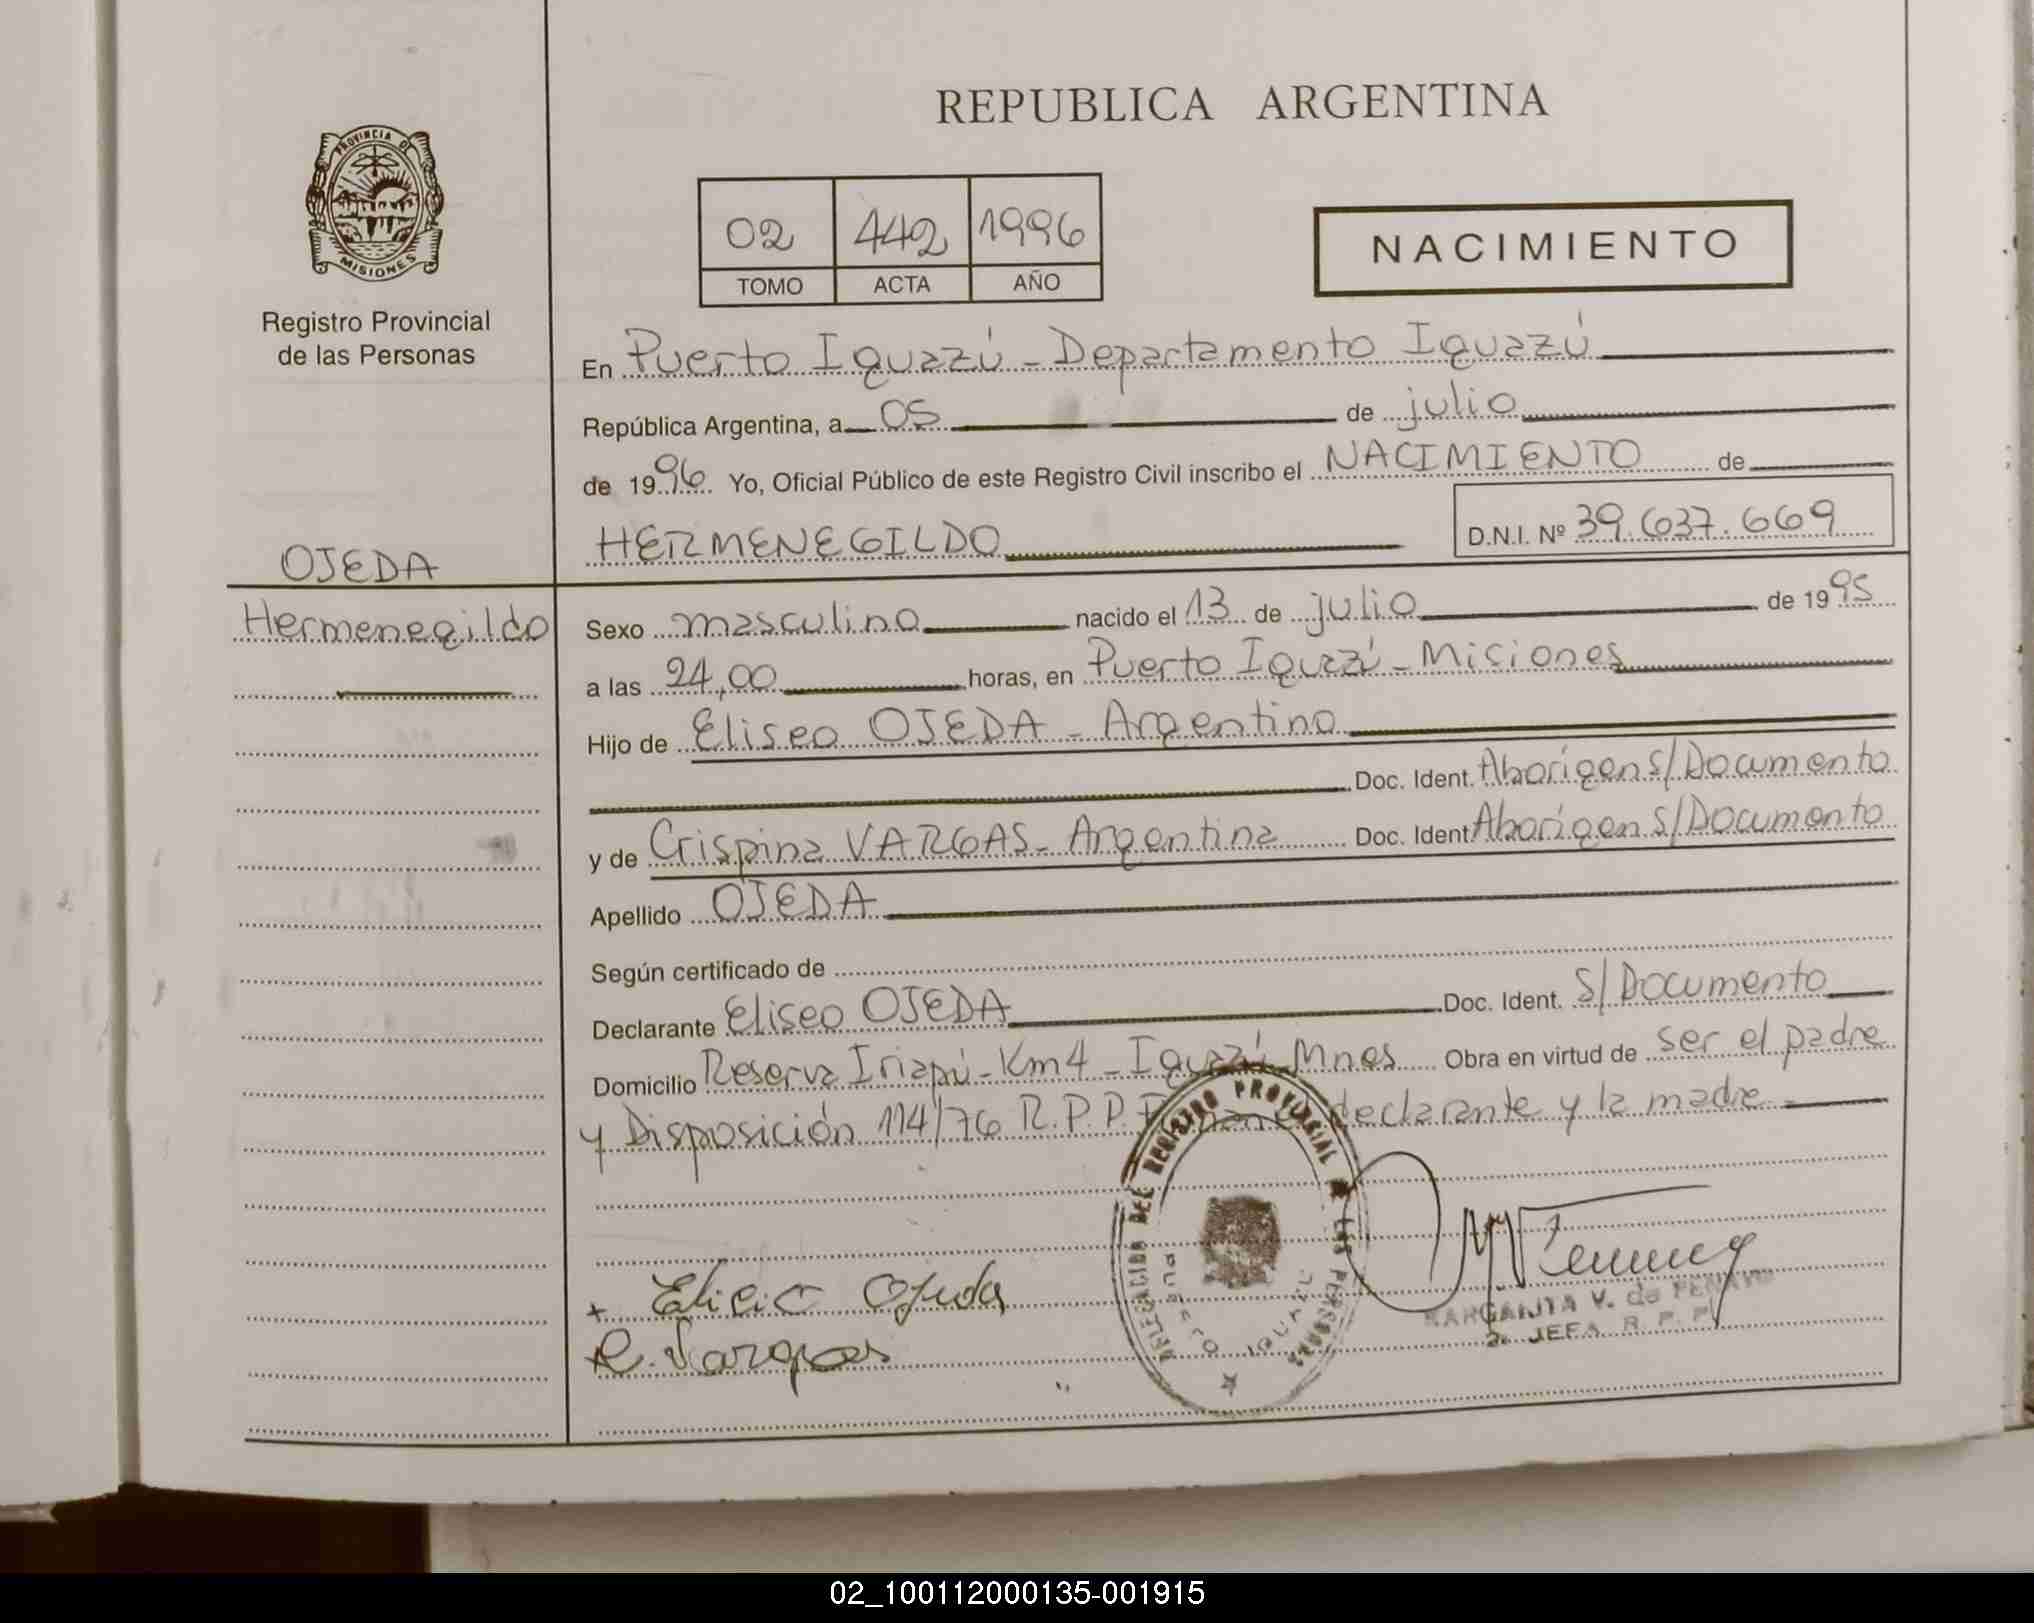 REPUBLICA ARGENTINA
PROVINCIA DE
MISIONES
Registro Provincial
de las Personas
02 442 1996
TOMO ACTA AÑO
NACIMIENTO
En Puerto Iguazú - Departamento Iguazú
República Argentina, a 05 de julio
de 1996 Yo, Oficial Público de este Registro Civil inscribo el NACIMIENTO de
HERMENEGILDO D.N.I. Nº 39.637.669
OJEDA
Hermenegildo
Sexo masculino nacido el 13 de julio de 1995
a las 24,00 horas, en Puerto Iguazú - Misiones
Hijo de Eliseo OJEDA - Argentino
Doc. Ident. Aborigen S/Documento
y de Crispina VARGAS - Argentina Doc. Ident Aborigen S/Documento
Apellido OJEDA
Según certificado de
Declarante Eliseo OJEDA Doc. Ident. S/Documento
Domicilio Reserva Iriapú - Km4 - Iguazú Mnes Obra en virtud de ser el padre
y Disposición 114/76 R.P.P. declarante y la madre -
DELEGACION DEL REGISTRO PROVINCIAL DE LAS PERSONAS
PUERTO IGUAZU
Ojeda
Vargas
MARGARITA V. de
JEFA R. P. P.
02_100112000135-001915